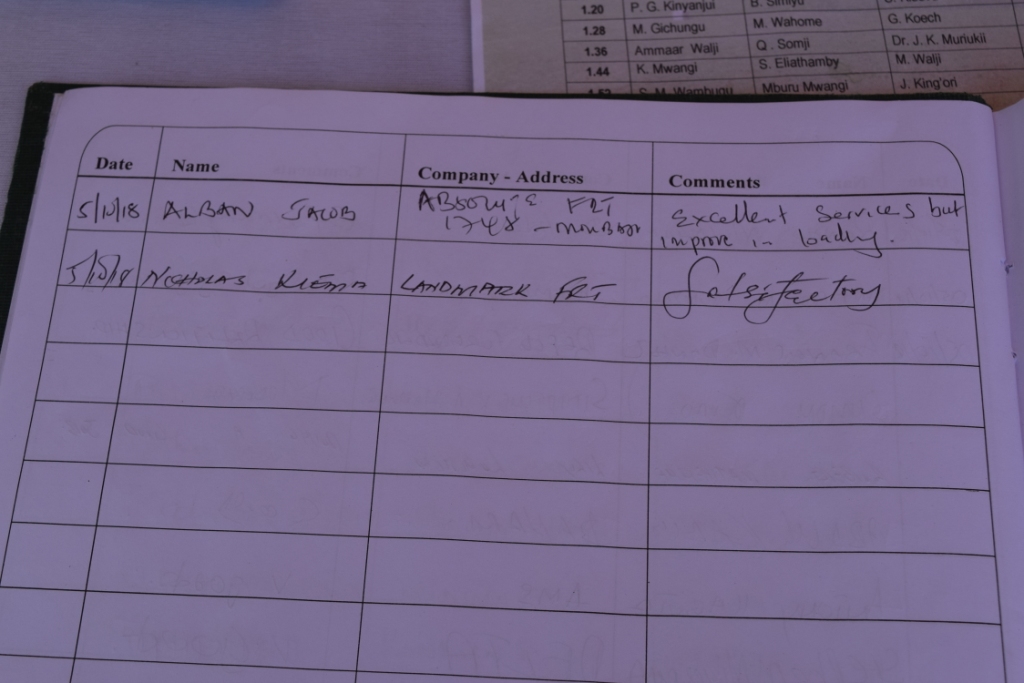 1.20 P. G. Kinyanjui B. Simiyu
1.28 M. Gichungu M. Wahome G. Koech
1.36 Ammaar Walji Q. Somji Dr. J. K. Muriukii
1.44 K. Mwangi S. Eliathamby M. Walji
1.52 S. M. Wambugu Mburu Mwangi J. King'ori
Date Name Company - Address Comments
5/10/18 ALBAN JACOB ABSOLUTE FRT Excellent Services but
1748 - improve in loading.
5/10/18 NICHOLAS KIEMA LANDMARK FRT Satisfactory